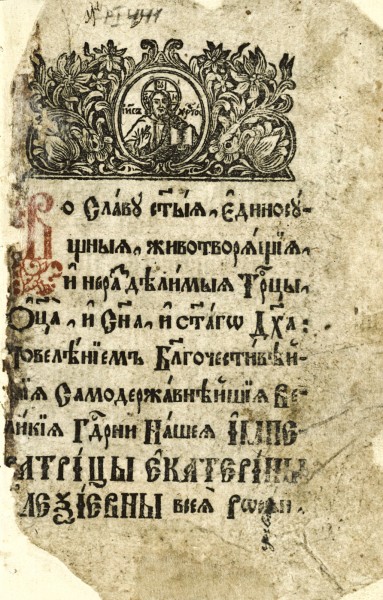 ІИСЪ ХРТОСЪ
Во Славу ст҃ыѧ, Єдиносу-
щныѧ, животворѧщіѧ,
и нераздѣлимыѧ Трⷪ҇цы
Ѻц҃а, и Сн҃а, и ст҃агѡ Дх҃а:
повелѣніемъ Бл҃гочестивѣй-
шіѧ Самодержавнѣйшіѧ Ве-
ликіѧ Гдⷭ҇рни Нашеѧ ИМПЕ-
РАТРІЦЫ ЄКАТЕРІНЫ
АЛЕѮІЕВНЫ всеѧ Рѡссіи.